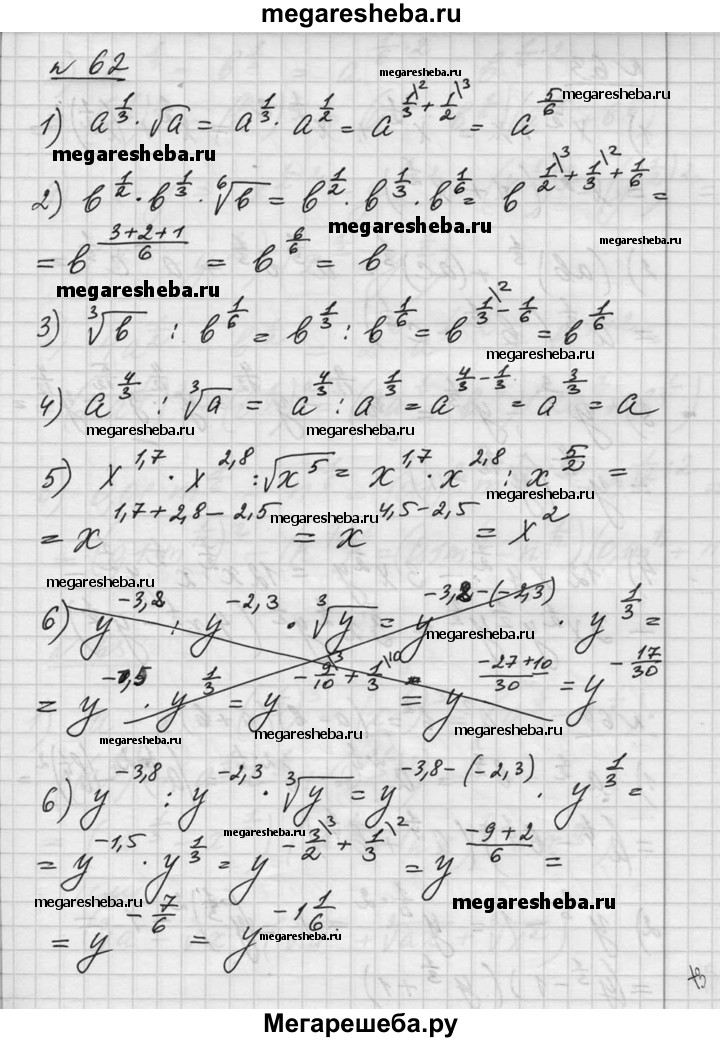 megaresheba.ru
n 62
megaresheba.ru
1) a^{1/3} · √a = a^{1/3} · a^{1/2} = a^{1/3\2 + 1/2\3} = a^{5/6}
megaresheba.ru
megaresheba.ru
2) b^{1/2} · b^{1/3} · ⁶√b = b^{1/2} · b^{1/3} · b^{1/6} = b^{1/2\3 + 1/3\2 + 1/6} =
megaresheba.ru
megaresheba.ru
= b^{(3+2+1)/6} = b^{6/6} = b
megaresheba.ru
3) ³√b : b^{1/6} = b^{1/3} : b^{1/6} = b^{1/3\2 - 1/6} = b^{1/6}
megaresheba.ru
4) a^{4/3} : ³√a = a^{4/3} : a^{1/3} = a^{4/3 - 1/3} = a^{3/3} = a
megaresheba.ru
megaresheba.ru
5) x^{1,7} · x^{2,8} : √x^5 = x^{1,7} · x^{2,8} : x^{5/2} =
megaresheba.ru
= x^{1,7+2,8-2,5} = x^{4,5-2,5} = x^2
megaresheba.ru
megaresheba.ru
6) y^{-3,2} : y^{-2,3} · ³√y = y^{-3,2-(-2,3)} · y^{1/3} =
megaresheba.ru
= y · y^{1/3} = y^{-9/10\3 + 1/3\10} = y^{(-27+10)/30} = y^{-17/30}
megaresheba.ru
megaresheba.ru
megaresheba.ru
6) y^{-3,8} : y^{-2,3} · ³√y = y^{-3,8-(-2,3)} · y^{1/3} =
megaresheba.ru
= y^{-1,5} · y^{1/3} = y^{-3/2\3 + 1/3\2} = y^{(-9+2)/6} =
megaresheba.ru
megaresheba.ru
= y^{-7/6} = y^{-1 1/6}
megaresheba.ru
Мегарешеба.ру